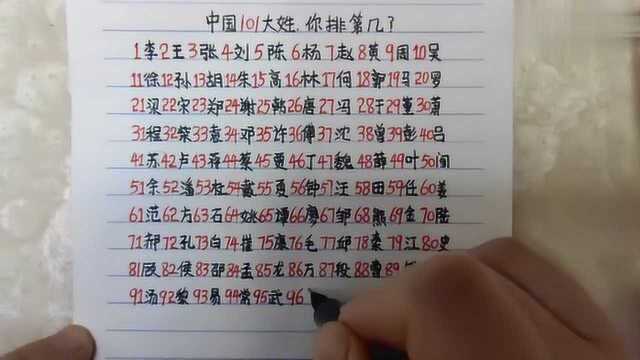 中国101大姓,你排第几?
1李2王3张4刘5陈6杨7赵8黄9周10吴
11徐12孙13胡14朱15高16林17何18郭19马20罗
21梁22宋23郑24谢25韩26唐27冯28于29董30萧
31程32柴33袁34邓35许36傅37沈38曾39彭40吕
41苏42卢43蒋44蔡45贾46丁47魏48薛49叶50阎
51余52潘53杜54戴55夏56钟57汪58田59任60姜
61范62方63石64姚65谭66廖67邹68熊69金70陆
71郝72孔73白74崔75康76毛77邱78秦79江80史
81顾82侯83邵84孟85龙86万87段88曹89
91汤92黎93易94常95武96